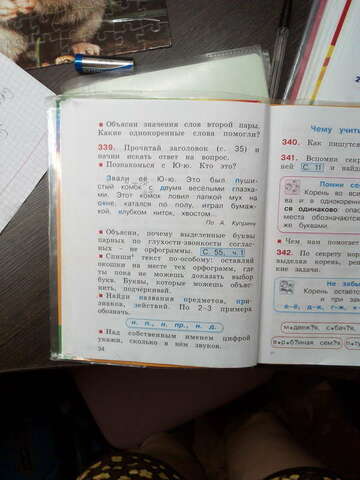 Объясни значения слов второй пары.
Какие однокоренные слова помогли?
339. Прочитай заголовок (с. 35) и
начни искать ответ на вопрос.
Познакомься с Ю-ю. Кто это?
Звали её Ю-ю. Это был пуши-
стый комок с двумя весёлыми глазка-
ми. Этот комок ловил лапкой мух на
окне, катался по полу, играл бумаж-
кой, клубком ниток, хвостом.
По А. Куприну
Объясни, почему выделенные буквы
парных по глухости-звонкости соглас-
ных – не орфограммы. С 55, ч.1
Спиши текст по-особому: оставляй
окошки на месте тех орфограмм, где
ты пока не можешь доказать выбор
букв. Буквы, которые можешь объяс-
нить, подчёркивай.
Найди названия предметов, при-
знаков, действий. По 2–3 примера
обозначь.
н. п., н. пр., н. д.
Над собственным именем цифрой
укажи, сколько в нём звуков.
34
Чему учит
340. Как пишутся
341. Вспомни секр
ней С 11 и найд
Помни се
Корень во всех
ва и в однокорен
св одинаково: опас
места обозначаются
же буквами.
Чем нам помогает
342. По секрету кор
выделяя корень,
кие задачи.
Не забы
Корень остаётс